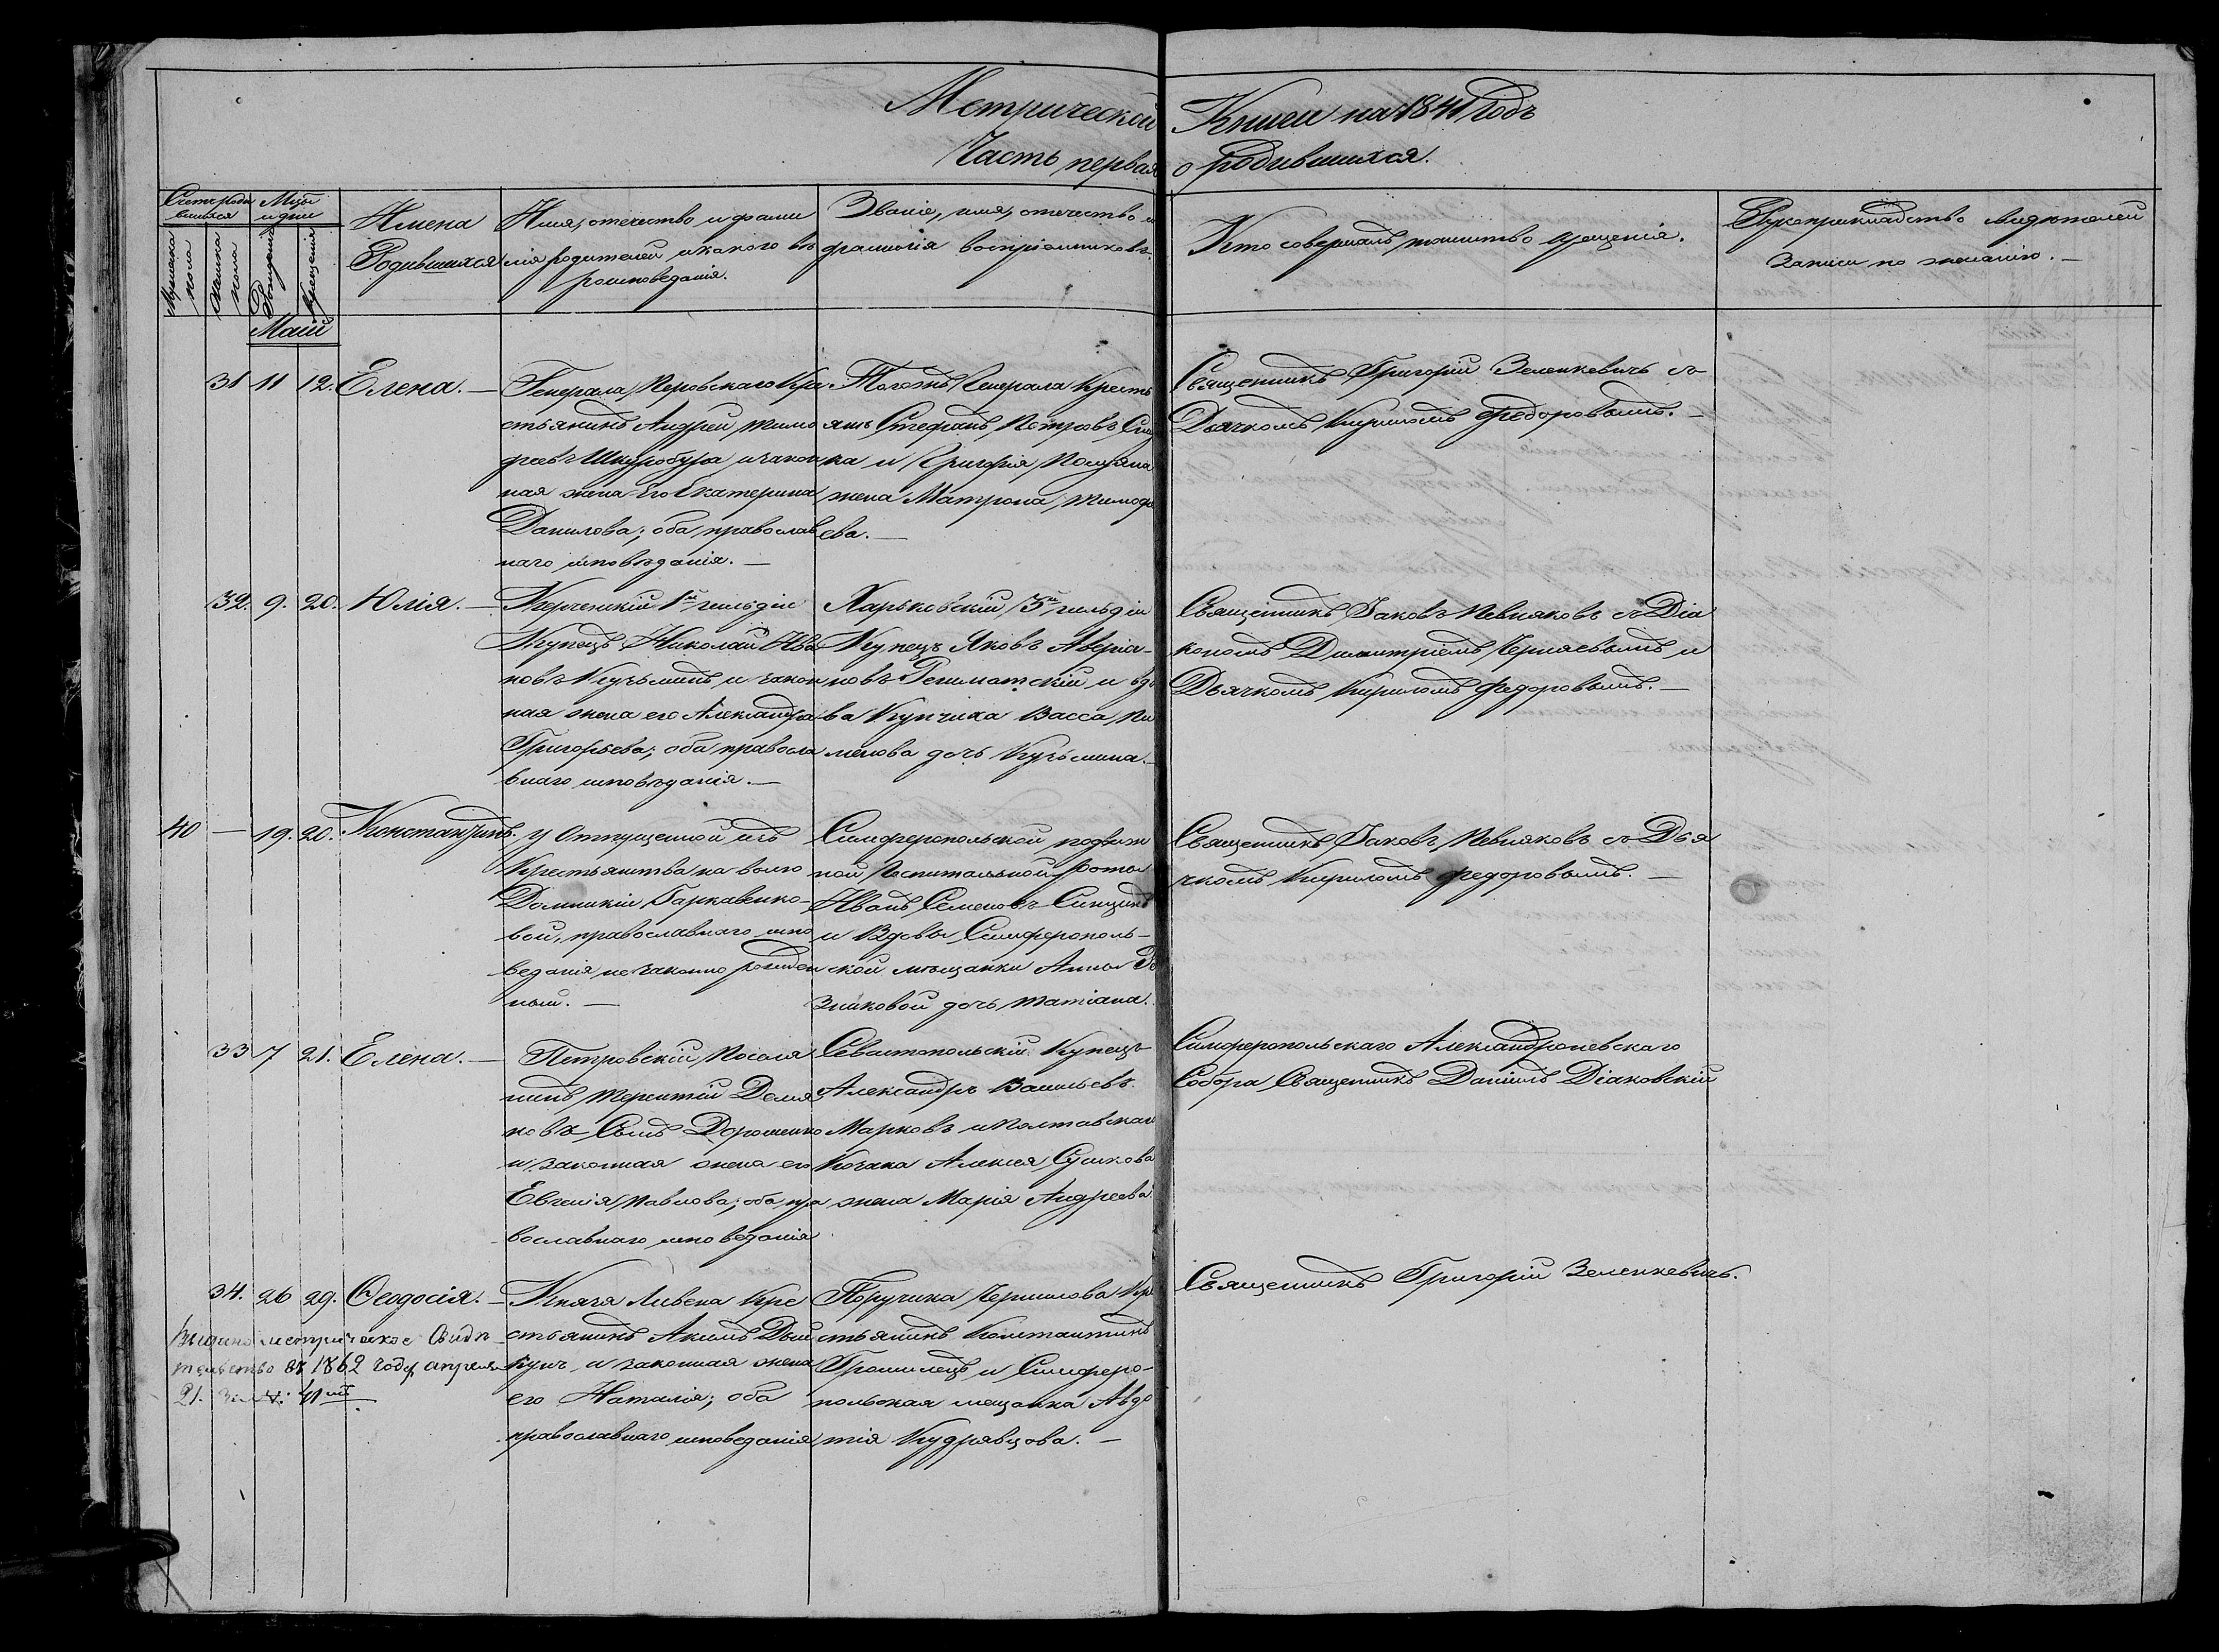 Метрической Книги на 1841 Годъ
Часть первая о родившихся.
Счетъ роди
вшихся
Мужеска
пола
Женска
пола
Мцы
и дни
Рожденія
Крещенія
Имена
Родившихся
Имя, отечество и фами
лія родителей и какого въ
роисповеданія.
Званіе, имя, отечество и
фамилія воспріемниковъ.
Кто совершалъ таинство крещенія.
Рукоприкладство свидѣтелей
записи по желанію. —
Маій
31 11 12. Елена. —
Генерала Перовскаго Кре
стьянинъ Андрей Тимо
феевъ Шкуробура и закон
ная жена Его Екатерина
Данилова; оба православ
наго исповѣданія. —
Тогожъ Генерала Кресть
янъ Стефанъ Петровъ
ка и Григорія
жена Матрона Тимофе
ева. —
Священникъ Григорій Зеленкевичъ съ
Дьячкомъ Кириломъ Федоровымъ. —
32. 9. 20. Юлія. —
Керченскій 1й гильдіи
Купецъ Николай Ива
новъ Кузьминъ и закон
ная жена его Александра
Григорьева; оба правосла
внаго исповѣданія. —
Харьковскій 3й гильдіи
Купецъ Яковъ Аверіа-
новъ и вдо
ва Купчиха Васса Пи
менова дочь Кузьмина. —
Священникъ Іаковъ Певняковъ съ Діа
кономъ Димитріемъ Чернявымъ и
Дьячкомъ Кириломъ Федоровымъ. —
40 — 19. 20. Константинъ.
У Отпущенной изъ
Крестьянства на волю
Домникіи Гаркавенко-
вой, православнаго испо
веданія незаконно рожден
ный. —
Симферопольской подвиж
ной Госпитальной роты
Иванъ Семеновъ
и Вдовы Симферополь-
ской мѣщанки Анны
зняковой дочь Татіана.
Священникъ Іаковъ Певняковъ съ Дья
чкомъ Кириломъ Федоровымъ. —
33 7 21. Елена. —
Петровскій Посаля
нинъ Терентій Демя
новъ Сынъ Дорошенко
и законная жена его
Евгенія Павлова; оба пра
вославнаго исповеданія
Севастопольскій Купецъ
Александръ Васильевъ
Марковъ и Полтавскаго
Козака Алексея Сушкова
жена Марія Андреева.
Симферопольскаго Александроневскаго
Собора Священникъ Даніилъ Діаковскій
34. 26 29. Ѳеодосія. —
Князя Ливена Кре
стьянинъ Акимъ
и законная жена
его Наталія; оба
православнаго исповеданія
Поручика Чернилова Кр
стьянинъ Константинъ
и Симферо-
польская мещанка Авдо
тія Кудрявцова. —
Священникъ Григорій Зеленкевичъ.
Выдано метрическое Свидѣ
тельство въ 1862 году апреля
21. за №: 41мъ